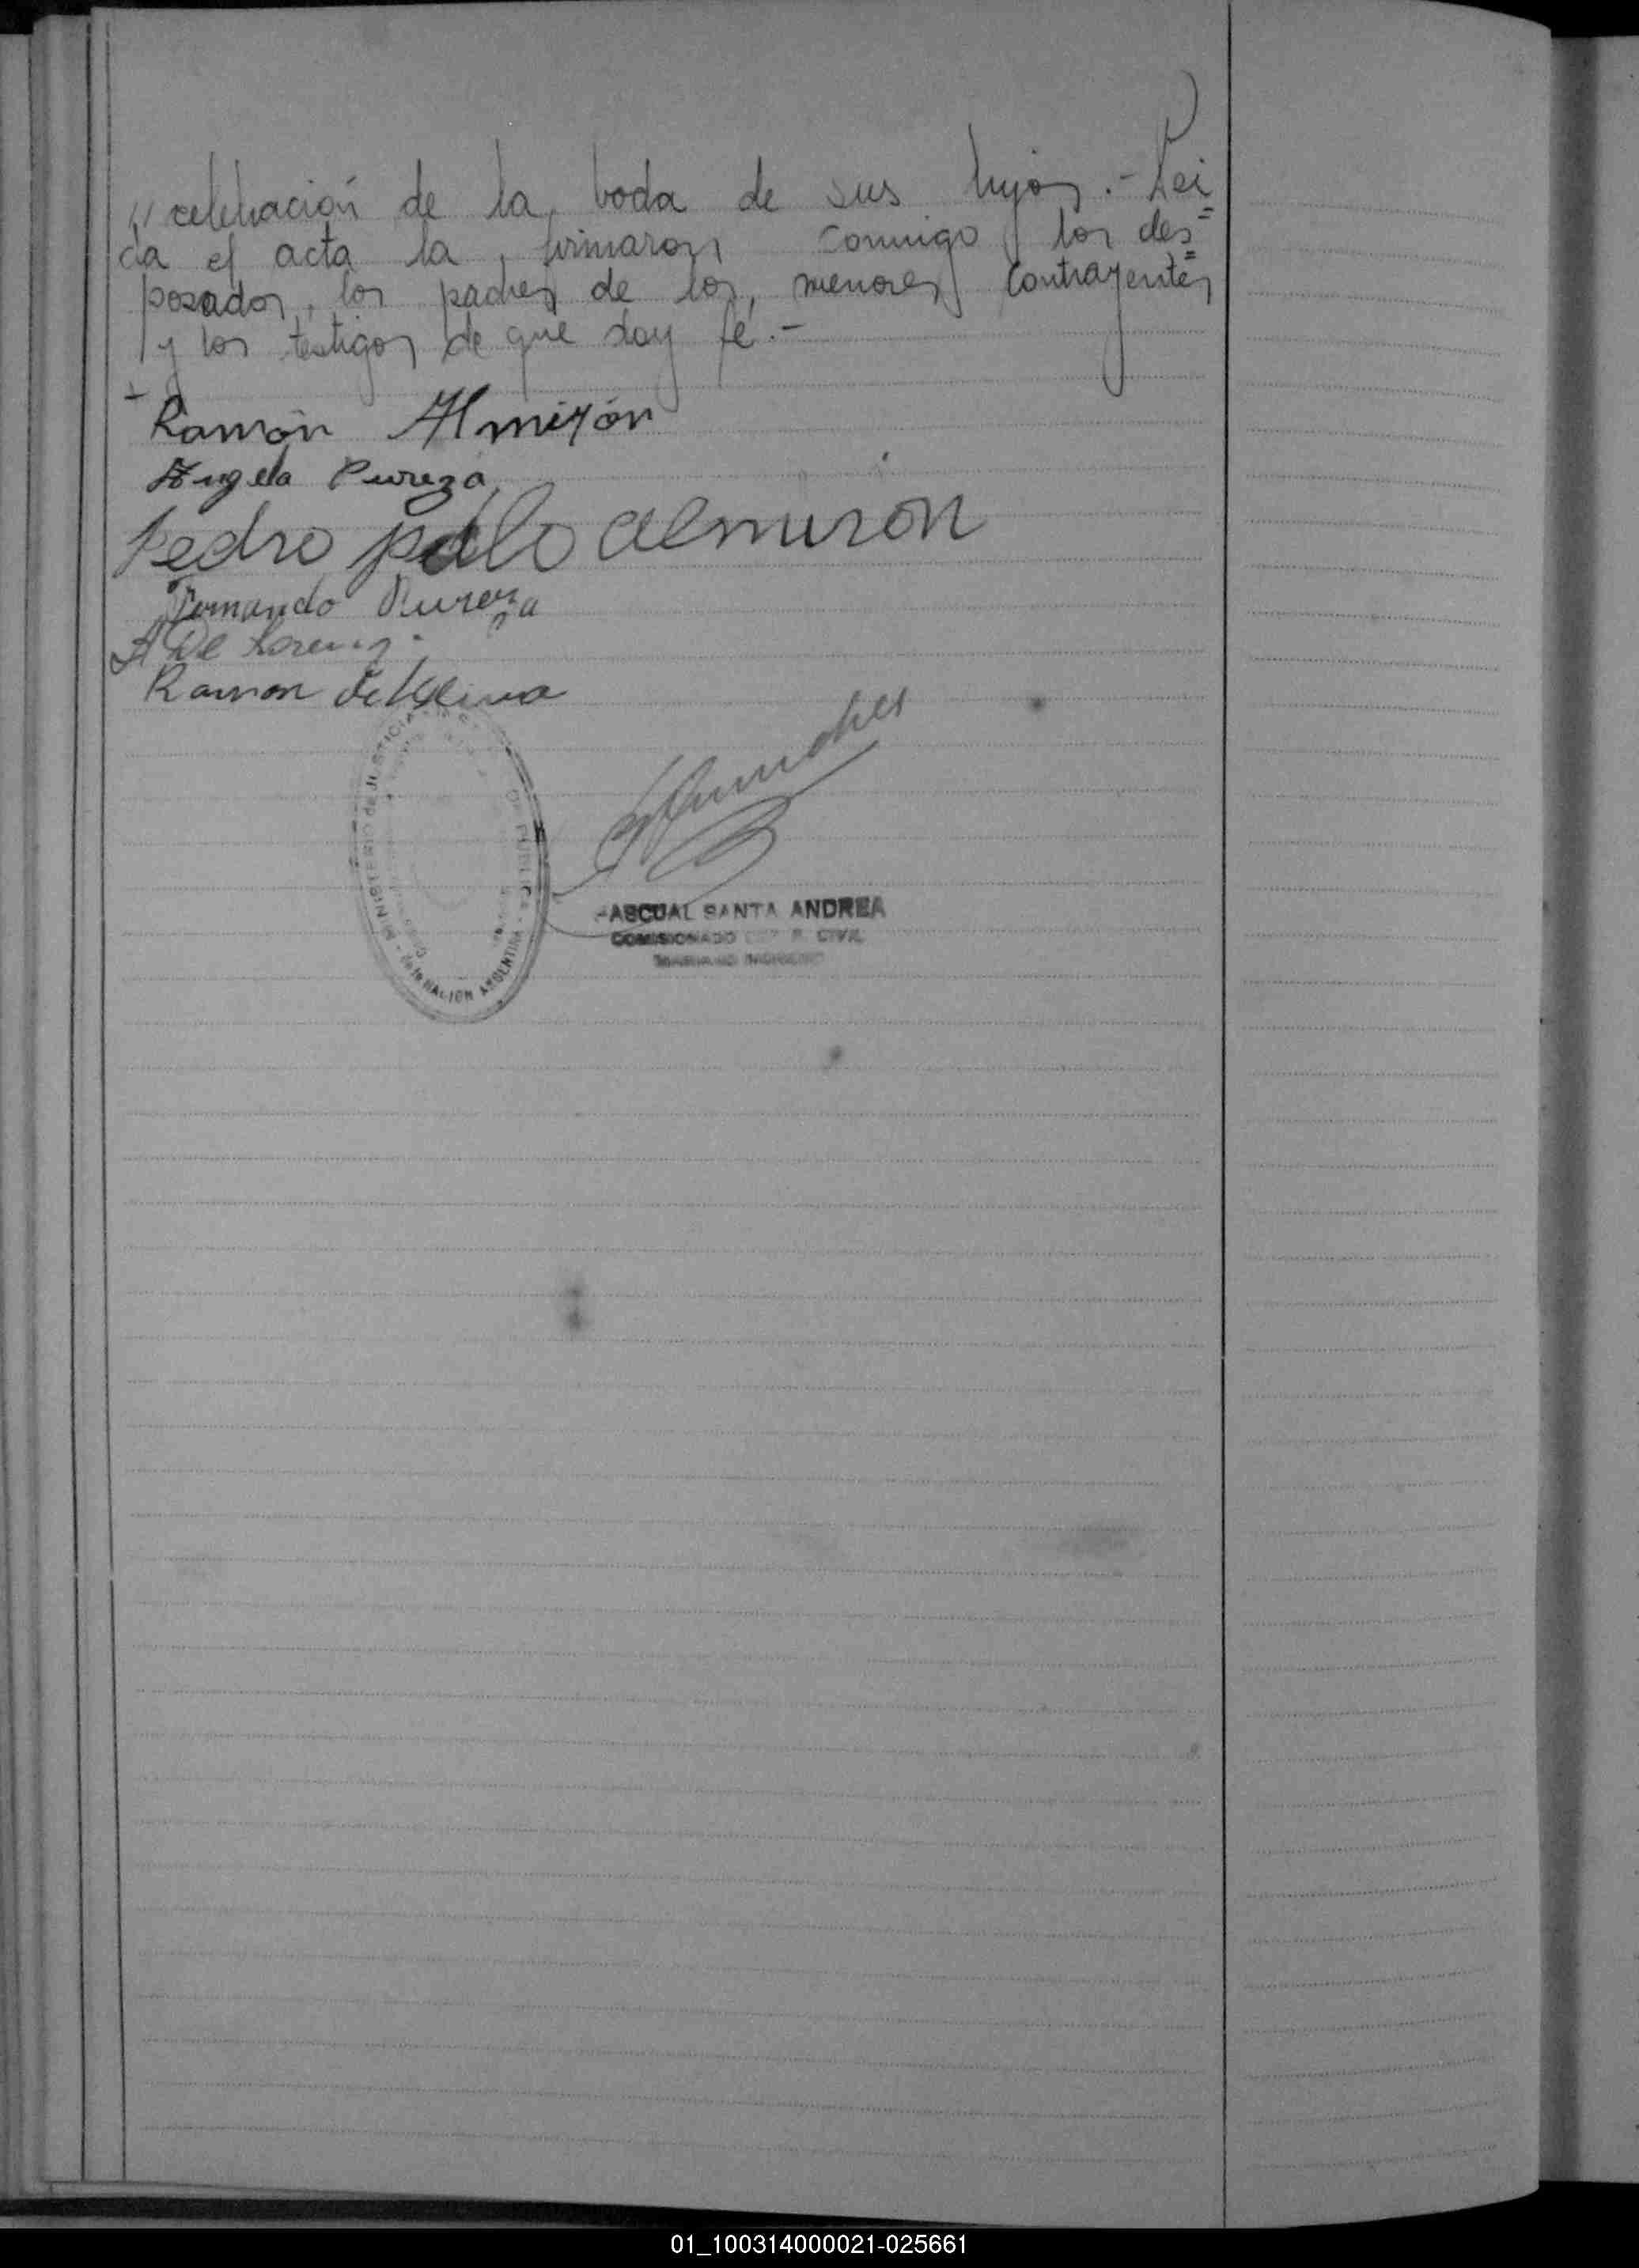 // celebración de la boda de sus hijos.- Leí
da el acta la firmaron conmigo los des=
posados, los padres de los menores contrayentes
y los testigos de que doy fé.-
Ramón Almirón
Angela Pureza
Pedro pablo almiron
Fernando Pureza
A De Lorenzi
Ramon
MINISTERIO DE JUSTICIA
PUBLICA
de la NACION ARGENTINA
PASCUAL SANTA ANDREA
COMISIONADO R. CIVIL
MARIANO MORENO
01_100314000021-025661